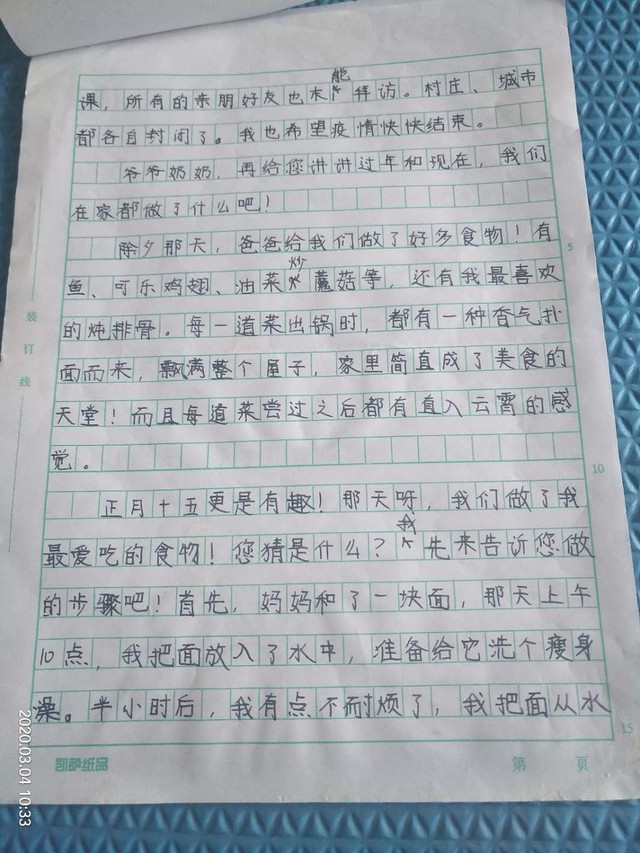 课，所有的亲朋好友也未能拜访。村庄、城市
都各自封闭了。我也希望疫情快快结束。
爷爷奶奶，再给您讲讲过年和现在，我们
在家都做了什么吧！
除夕那天，爸爸给我们做了好多食物！有
鱼、可乐鸡翅、油菜炒蘑菇等，还有我最喜欢
的炖排骨。每一道菜出锅时，都有一种香气扑
面而来，飘满整个屋子，家里简直成了美食的
天堂！而且每道菜尝过之后都有直入云霄的感
觉。
正月十五更是有趣！那天呀，我们做了我
最爱吃的食物！您猜是什么？我先来告诉您做
的步骤吧！首先，妈妈和了一块面，那天上午
10点，我把面放入了水中，准备给它洗个瘦身
澡。半小时后，我有点不耐烦了，我把面从水
装订线
5
10
15
凯萨纸品
第 页
2020.03.04 10:33